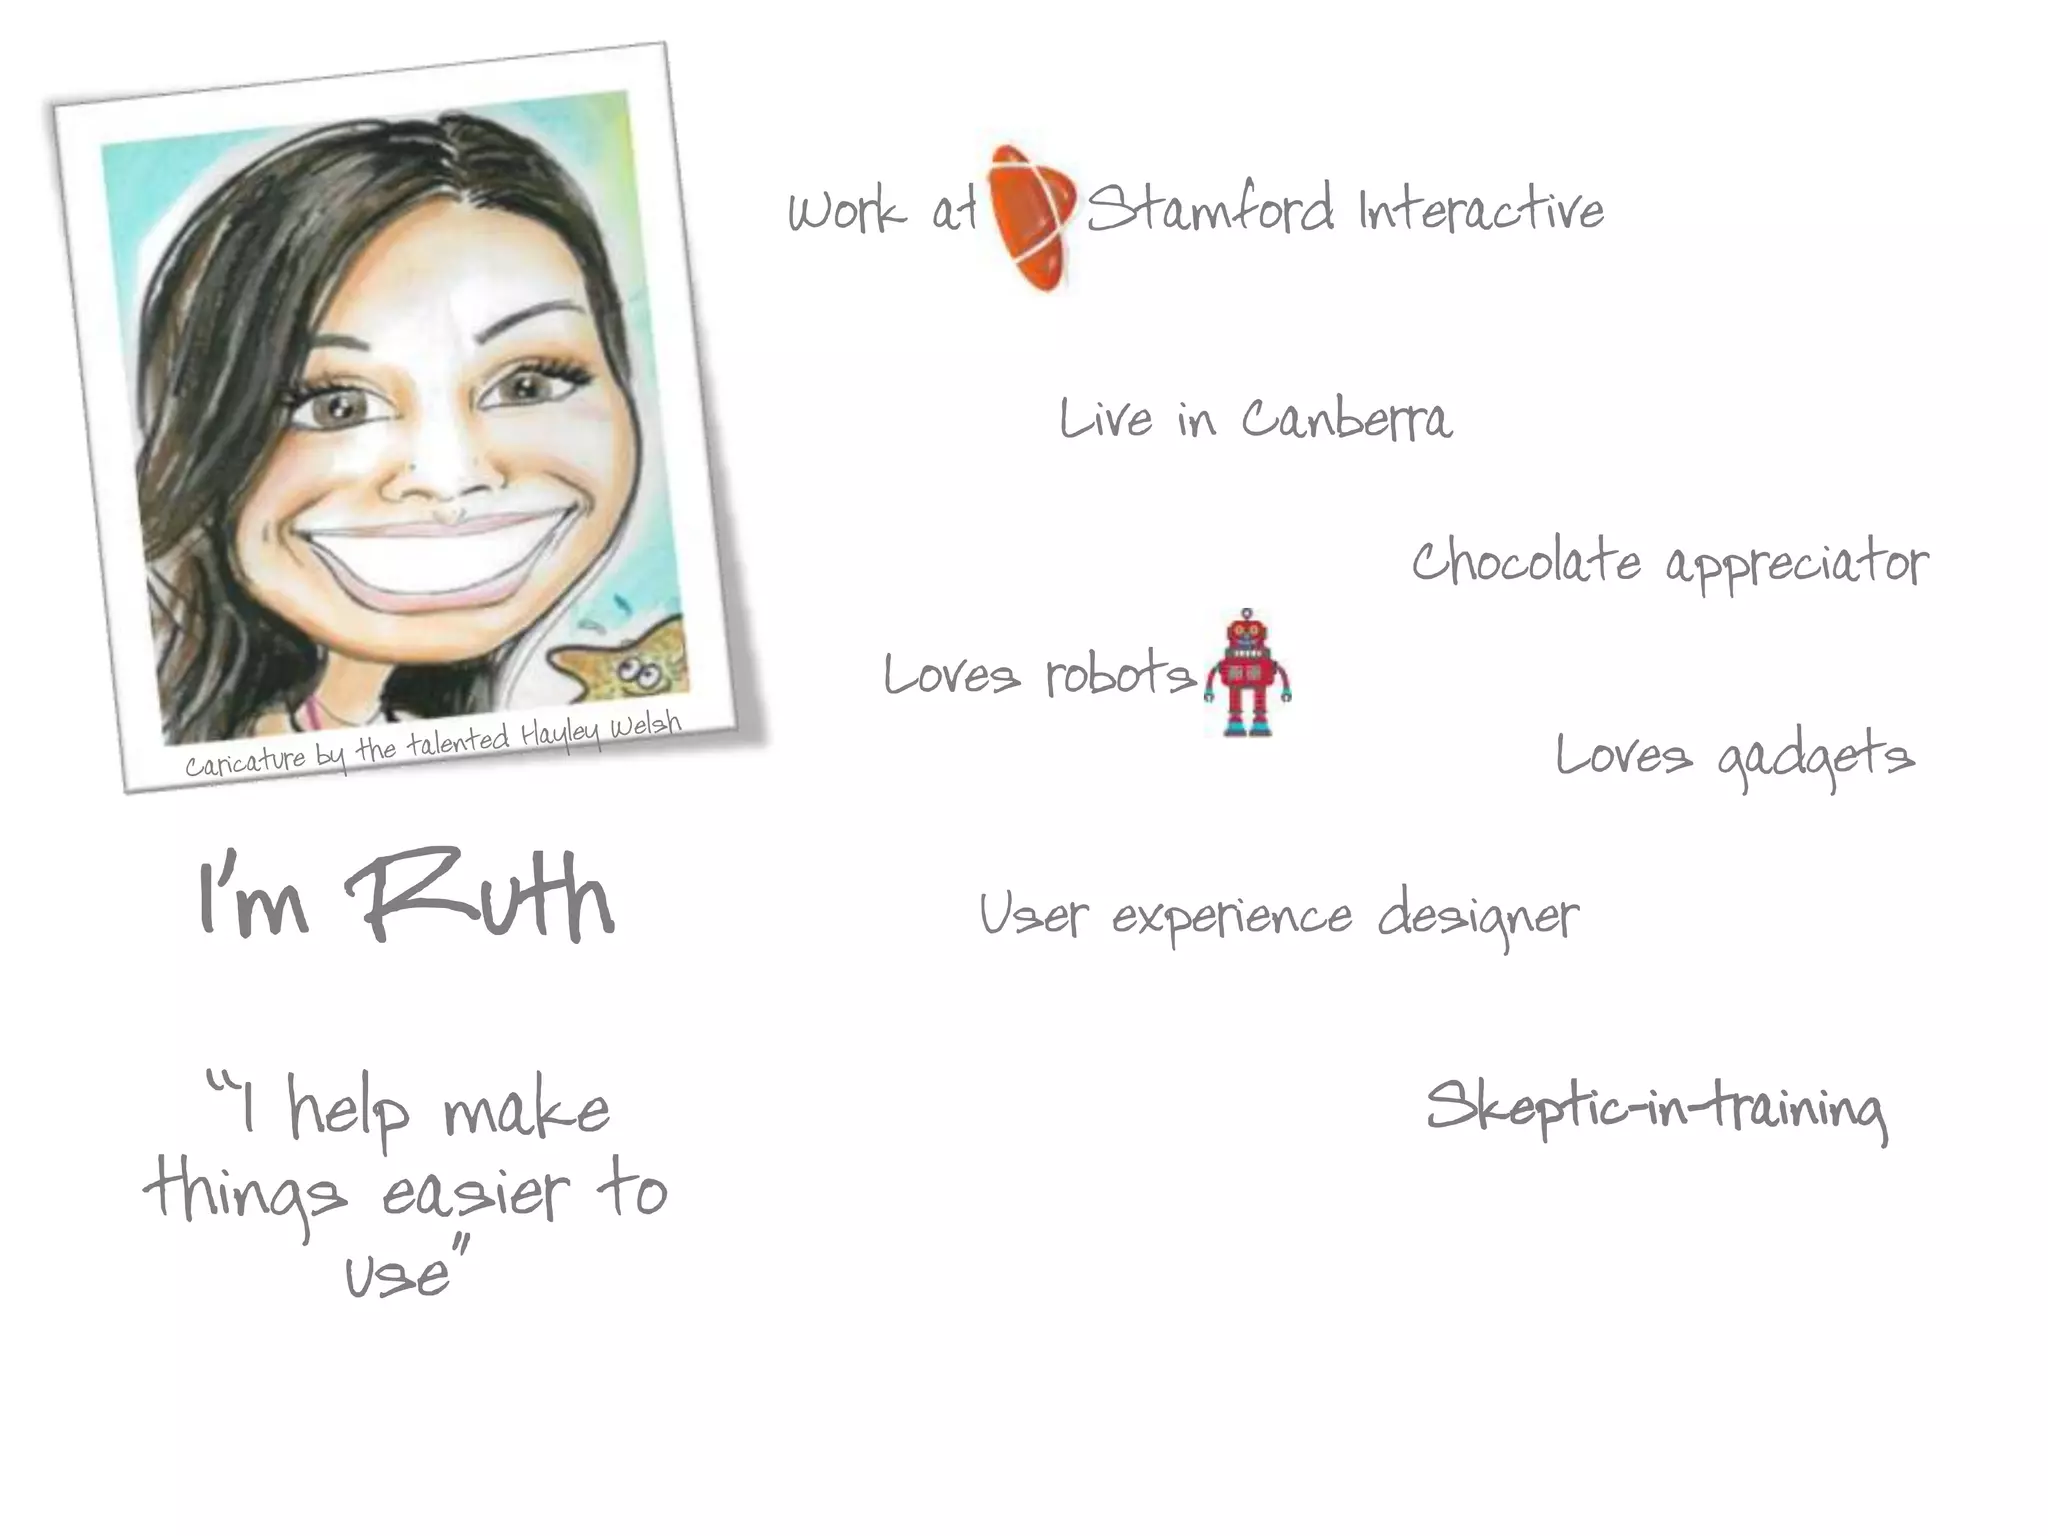 Work at Stamford Interactive
Live in Canberra
Chocolate appreciator
Loves robots
Caricature by the talented Hayley Welsh
Loves gadgets
I'm Ruth
User experience designer
“I help make
things easier to
use”
Skeptic-in-training